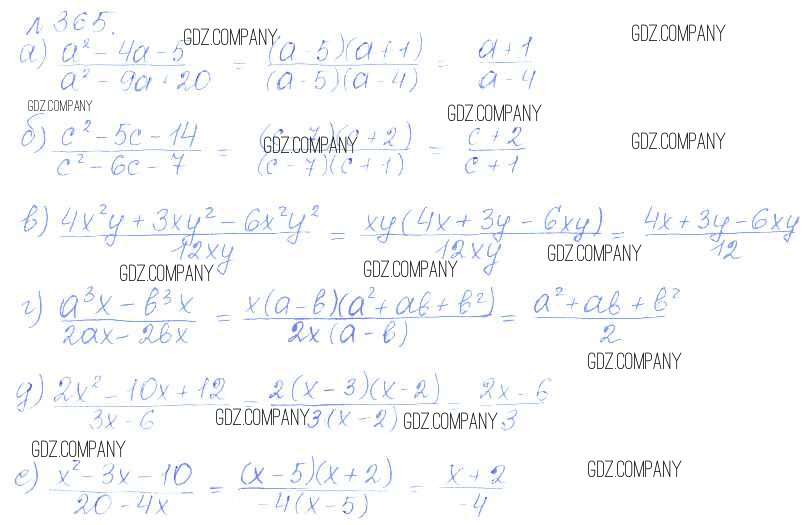 № 365.
GDZ.COMPANY GDZ.COMPANY
а) (a² - 4a - 5)/(a² - 9a + 20) = ((a - 5)(a + 1))/((a - 5)(a - 4)) = (a + 1)/(a - 4)
GDZ.COMPANY GDZ.COMPANY
б) (c² - 5c - 14)/(c² - 6c - 7) = ((c - 7)(c + 2))/((c - 7)(c + 1)) = (c + 2)/(c + 1)
GDZ.COMPANY GDZ.COMPANY
в) (4x²y + 3xy² - 6x²y²)/(12xy) = (xy(4x + 3y - 6xy))/(12xy) = (4x + 3y - 6xy)/12
GDZ.COMPANY GDZ.COMPANY GDZ.COMPANY
г) (a³x - b³x)/(2ax - 2bx) = (x(a - b)(a² + ab + b²))/(2x(a - b)) = (a² + ab + b²)/2
GDZ.COMPANY
д) (2x² - 10x + 12)/(3x - 6) = (2(x - 3)(x - 2))/(3(x - 2)) = (2x - 6)/3
GDZ.COMPANY GDZ.COMPANY
GDZ.COMPANY GDZ.COMPANY
е) (x² - 3x - 10)/(20 - 4x) = ((x - 5)(x + 2))/(-4(x - 5)) = (x + 2)/-4